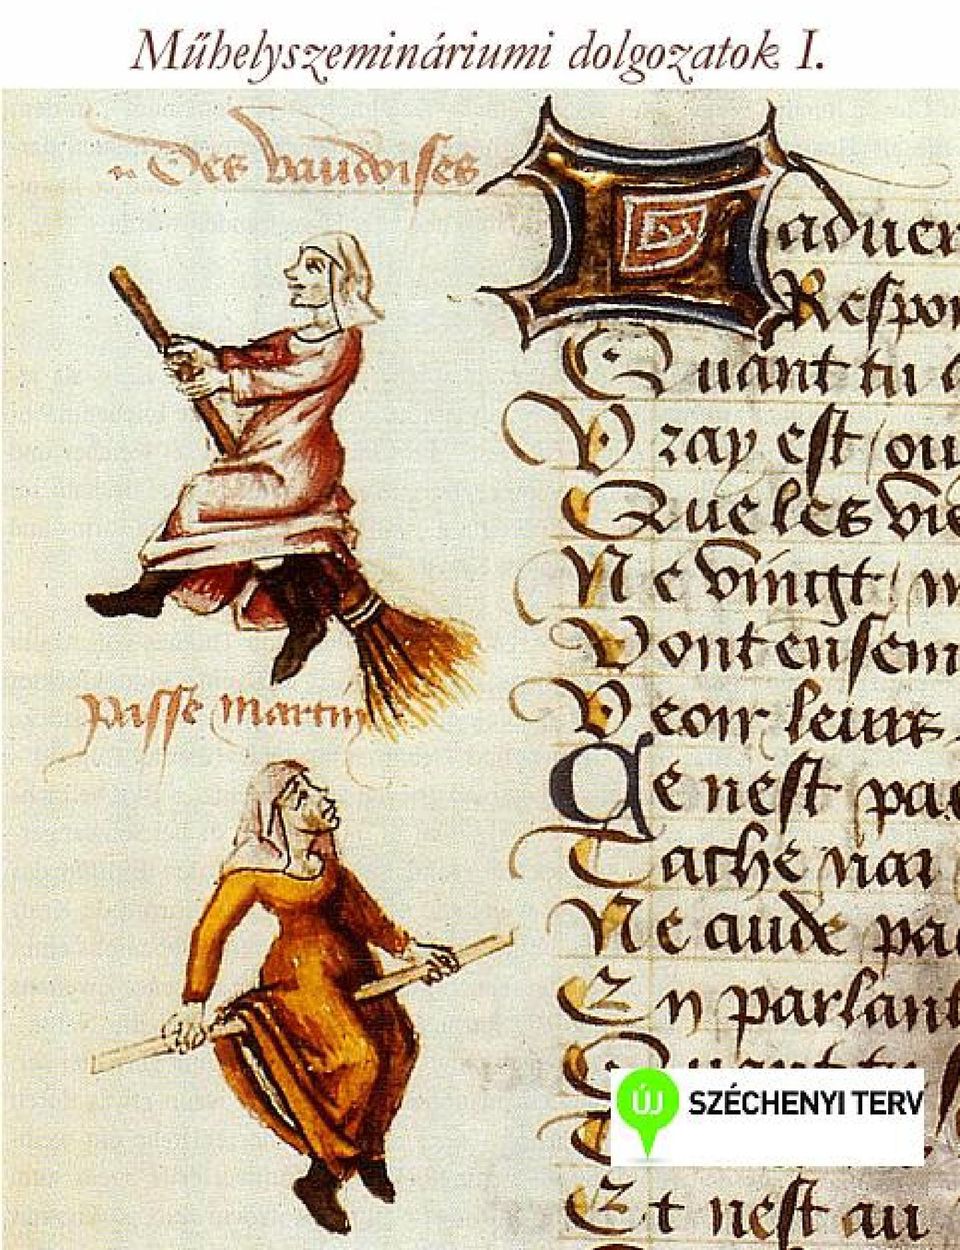 Műhelyszemináriumi dolgozatok I.
Des vaudoises
L
aduer
Respon
Quant tu
Vray est ou
Que les vie
Ne vingt
Vont ensem
Veoir leurs
passe martin
Ce nest pas
Tache
Ne aude pa
En parlant
Quant tu
ÚJ SZÉCHENYI TERV
Et nest au